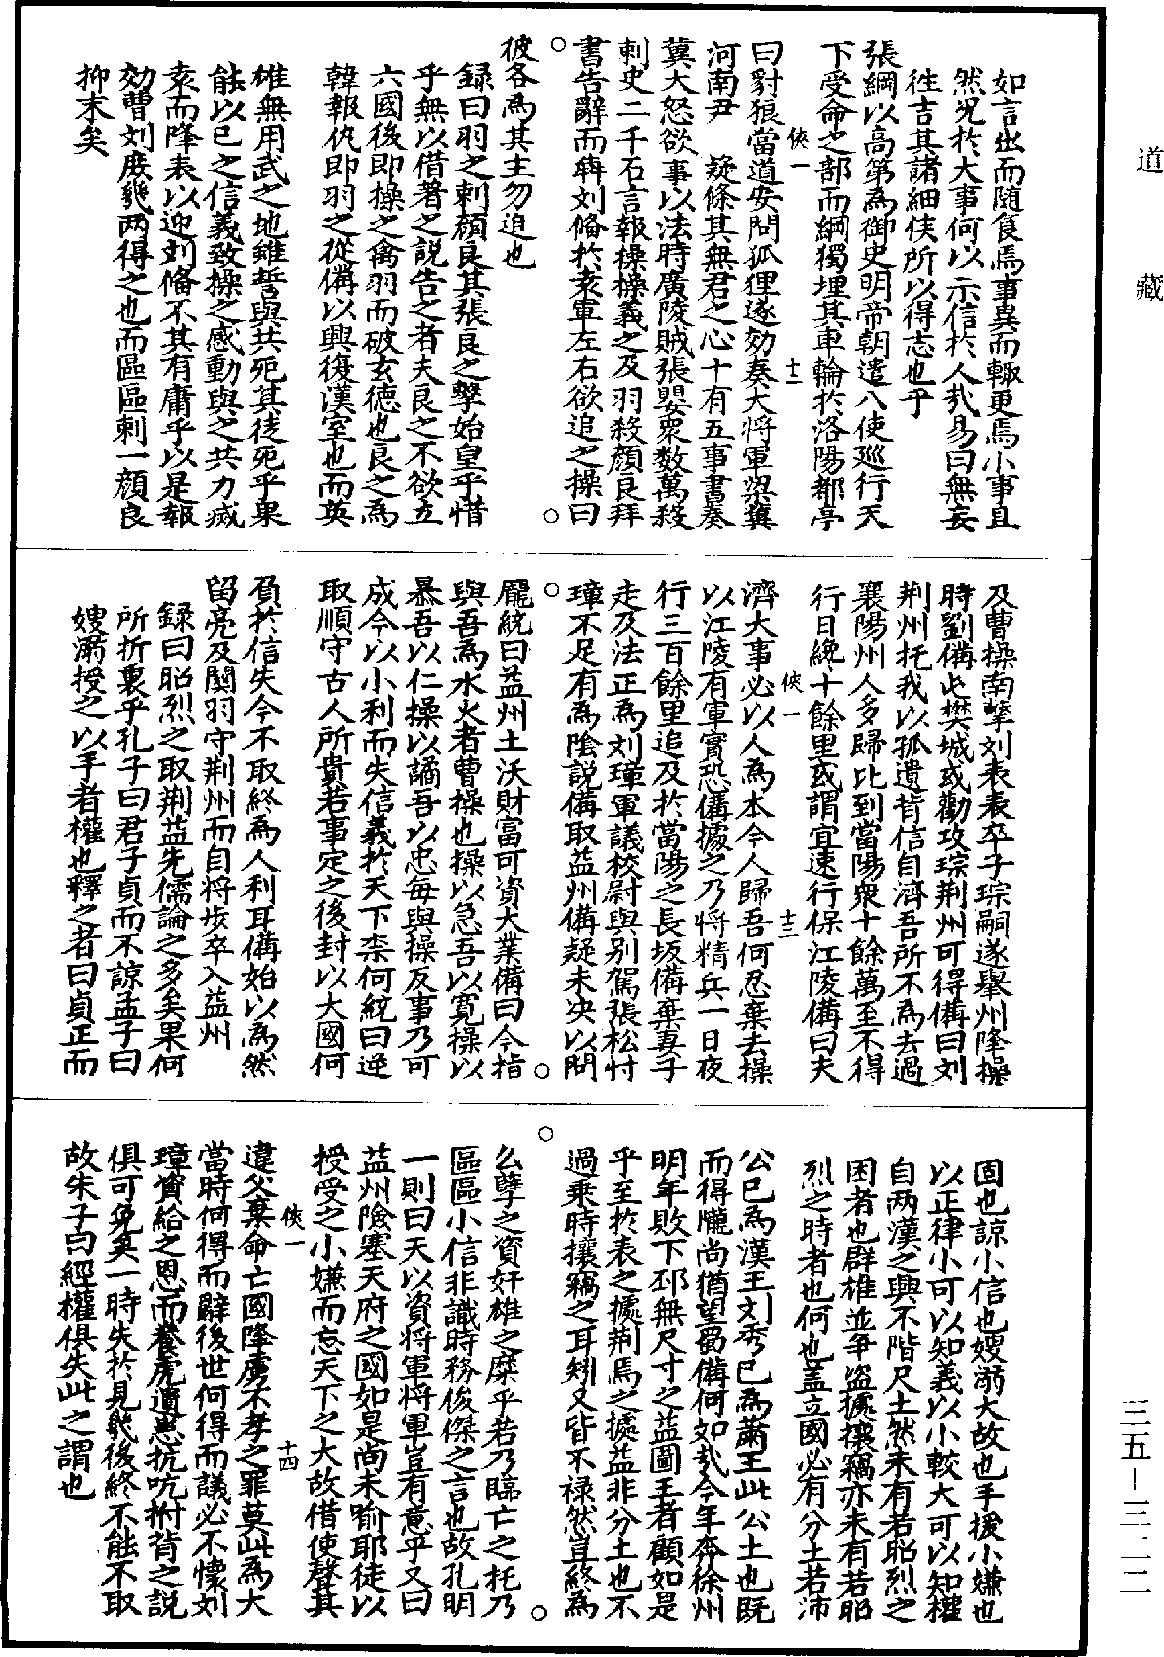 道藏
如言出而随食焉事異而輙更焉小事且
然况扵大事何以示信扵人㢤易曰無妄
徃吉其諸細侠所以得志也乎
張綱以高第為御史明帝朝遣八使廵行天
下受命之部而綱獨埋其車輪扵洛陽都亭
侠一
十二
曰豺狼當道安問狐狸遂効奏大将軍梁冀
河南尹 疑條其無君之心十有五事書奏
冀大怒欲事以法時廣陵賊張嬰衆数萬殺
刺史二千石言報操操義之及羽殺顔良拜
書告辭而犇刘俻扵袁軍左右欲追之操曰
彼各為其主勿追也
録曰羽之刺顔良其張良之擊始皇乎惜
乎無以借著之說告之者夫良之不欲立
六國後即操之禽羽而破玄徳也良之為
韓報仇即羽之從俻以興復漢室也而英
雄無用武之地雖誓與共死其徒死乎果
能以已之信義致操之感動與之共力滅
袁而降表以迎刘俻不其有庸乎以是報
効曹刘庻㡬两得之也而區區刺一顔良
抑末矣
及曹操南擊刘表表卒子琮嗣遂舉州降操
時劉俻屯樊城或勸攻琮荆州可得俻曰刘
荆州托我以孤遺背信自濟吾所不為去過
襄陽州人多歸比到當陽衆十餘萬至不得
行日纔十餘里或謂宜速行保江陵俻曰夫
侠一
十三
濟大事必以人為本今人歸吾何忍棄去操
以江陵有軍實恐俻據之乃将精兵一日夜
行三百餘里追及扵當陽之長坂俻棄妻子
走及法正為刘璋軍議校尉與别駕張松忖
璋不足有為隂說俻取益州俻疑未决以問
龎統曰益州土沃財富可資大業俻曰今指
與吾為水火者曹操也操以急吾以寛操以
暴吾以仁操以譎吾以忠毎與操反事乃可
成今以小利而失信義扵天下柰何統曰逆
取順守古人所貴若事定之後封以大國何
負扵信失今不取終為人利耳俻始以為然
留亮及關羽守荆州而自将歩卒入益州
録曰昭烈之取荆益先儒論之多矣果何
所折衷乎孔子曰君子貞而不諒孟子曰
嫂溺授之以手者權也釋之者曰貞正而
固也諒小信也嫂溺大故也手援小嫌也
以正律小可以知義以小較大可以知權
自两漢之興不階尺土然未有若昭烈之
困者也群雄並争盗據攘竊亦未有若昭
烈之時者也何也盖立國必有分土若沛
公巳為漢王刘秀巳為蕭王此公土也既
而得隴尚猶望蜀俻何如㢤今年奔徐州
明年敗下邳無尺寸之益圖王者顧如是
乎至扵表之據荆焉之據益非分土也不
過乗時攘竊之耳矧又皆不禄然豈終為
么孽之資奸雄之糜乎若乃歸亡之托乃
區區小信非識時務俊傑之言也故孔明
一則曰天以資将軍将軍豈有意乎又曰
益州險塞天府之國如是尚未喻耶徒以
授受之小嫌而忘天下之大故借使聲其
侠一
十四
違父棄命亡國降虜不孝之罪莫此為大
當時何得而辭後世何得而議必不懷刘
璋資給之恩而養虎遺患抗吭拊背之說
俱可免矣一時失扵見㡬後終不能不取
故朱子曰經權俱失此之謂也
三五—三一二